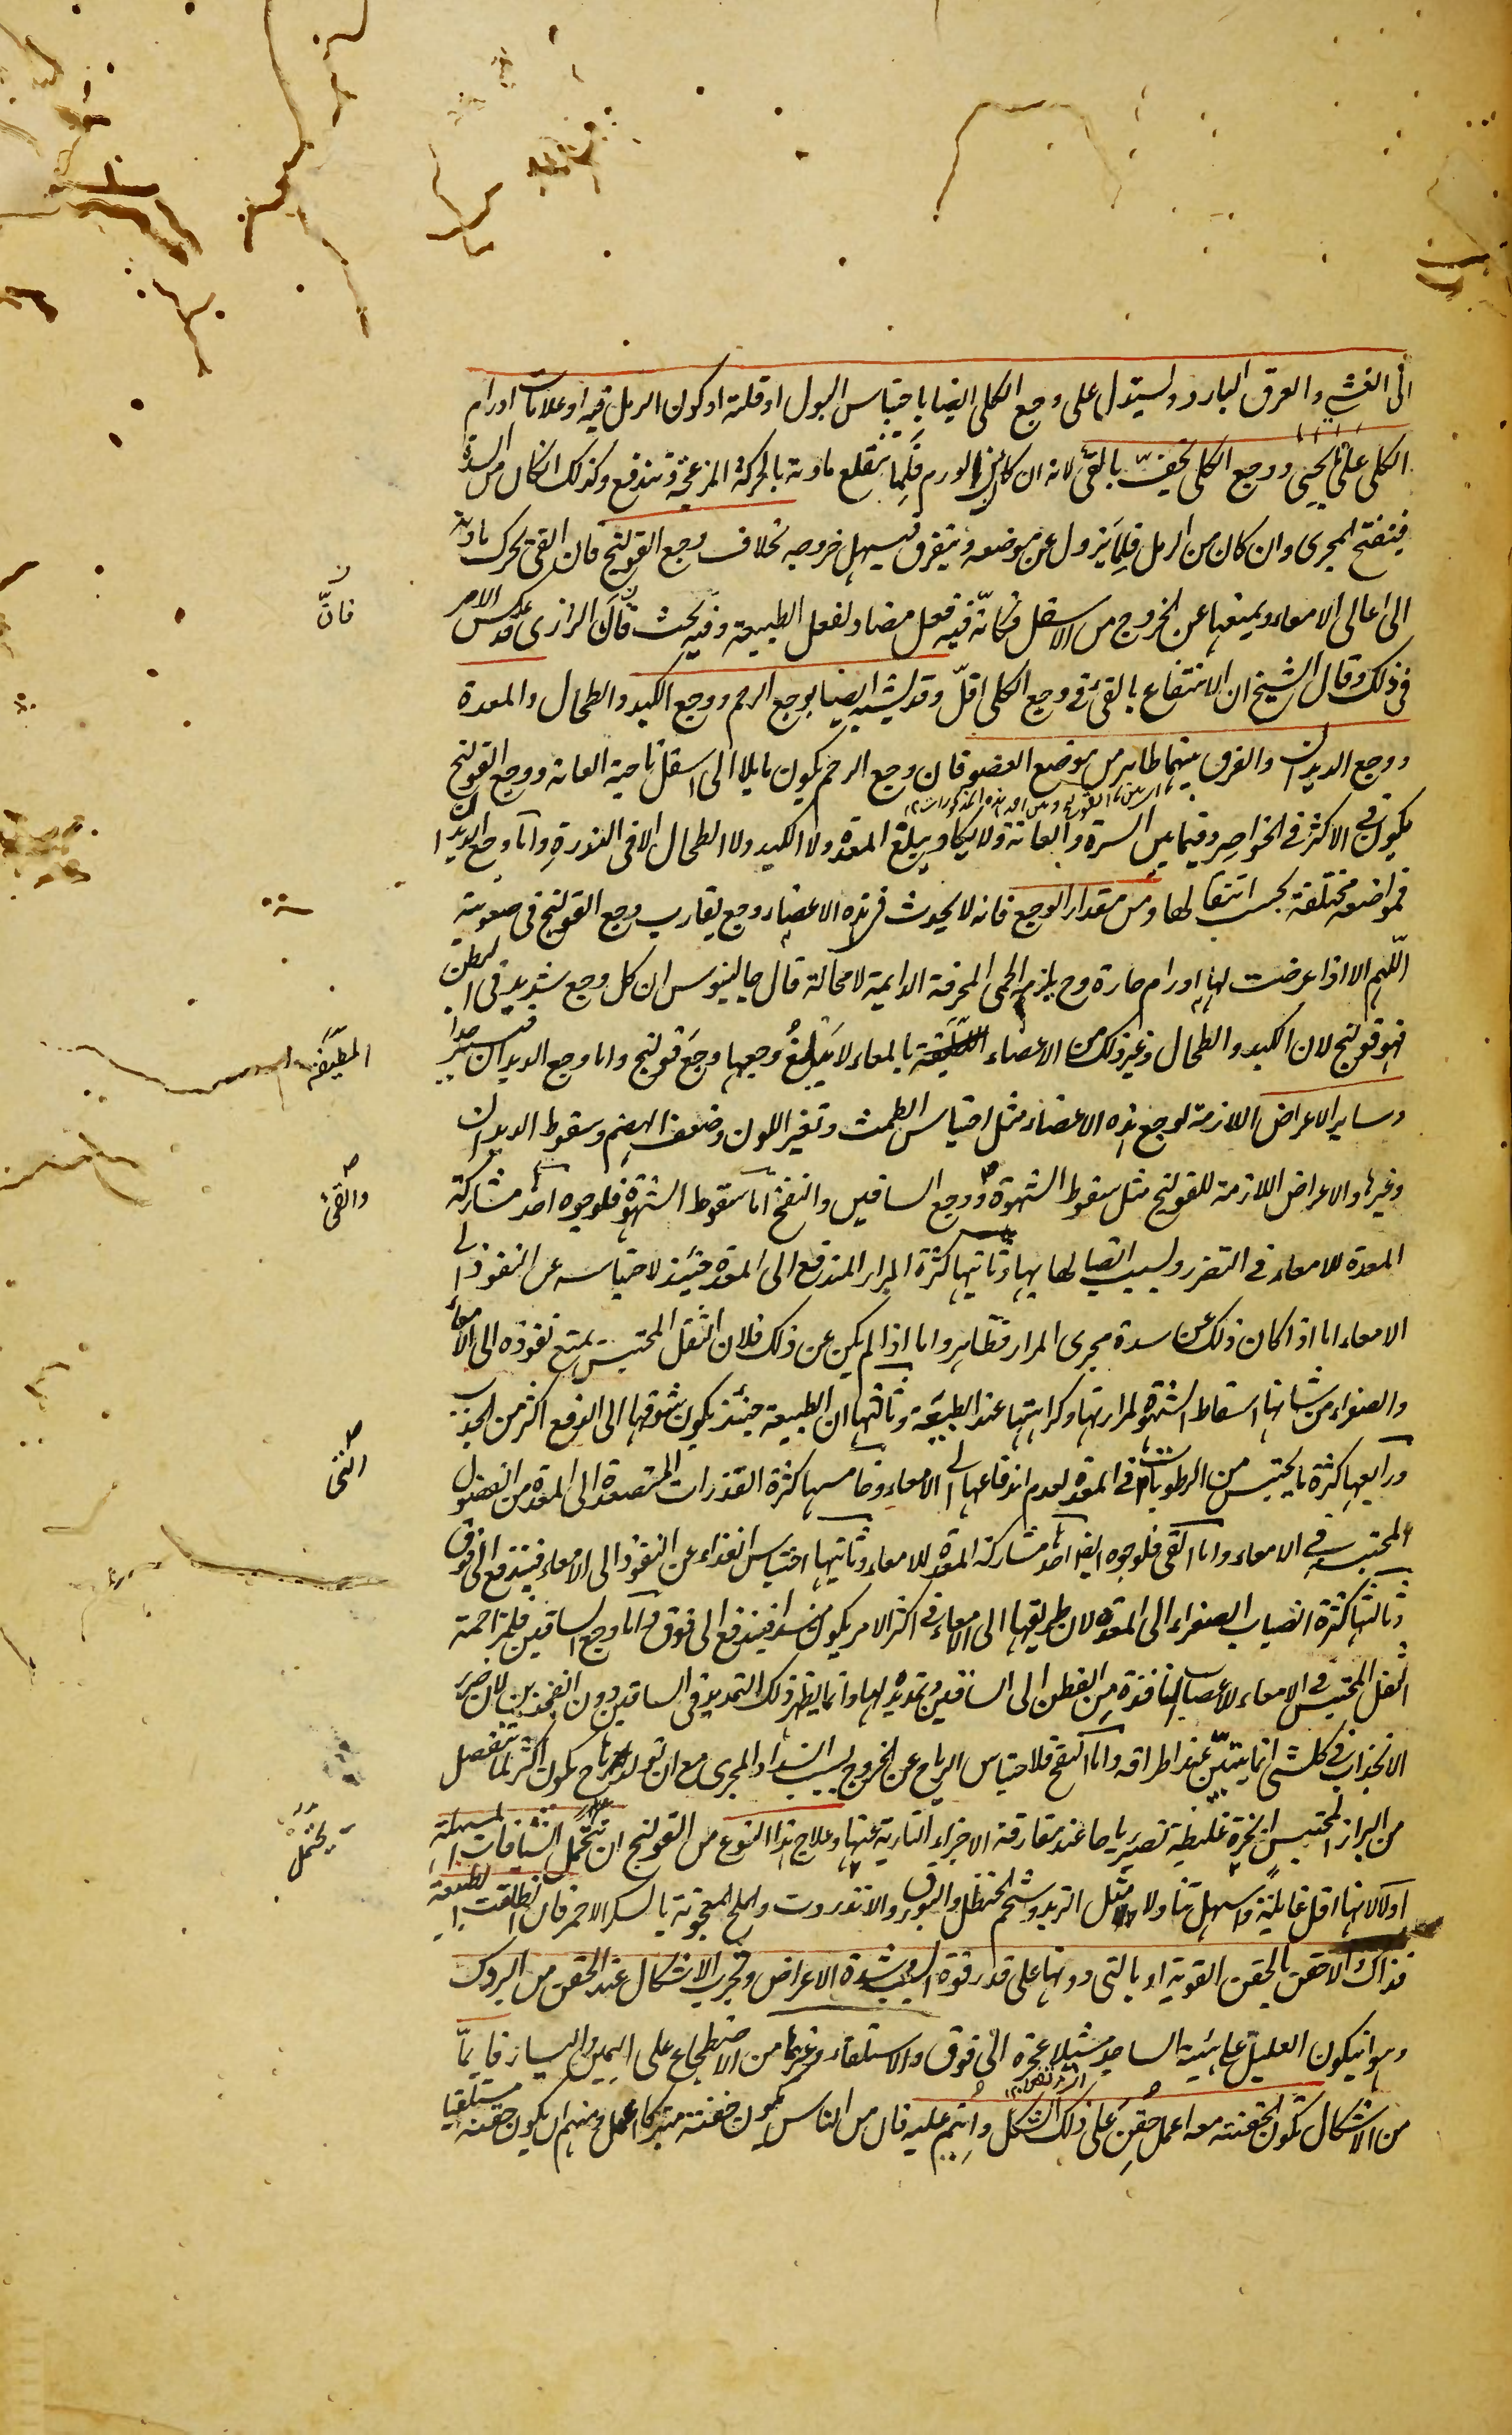 الى الغشى والعرق البارد ويستدل على وجع الكلى ايضا باحتباس البول او قلته او كون الرمل فيه او علامات اورام
الكلى على ما يجيى ووجع الكلى يخف بالقئ لانه ان كان من الورم فلما تنقلع مادته بالحركة المزعجة وتندفع وكذلك ان كان من السدة
فينفتح المجرى وان كان من الرمل فلما يزول عن موضعه ويتفرق فيسهل خروجه بخلاف وجع القولنج فان القئ يحرك مادته
الى اعالى الامعاء ويمنعها عن الخروج من الاسفل فكانّه فيه فعل مضاد لفعل الطبيعة وفيه بحث فانّ الرازى عكس الامر
فى ذلك وقال الشيخ ان الانتفاع بالقئ فى وجع الكلى اقلّ وقد يشتبه ايضا بوجع الرحم ووجع الكبد والطحال والمعدة
ووجع الديدان والفرق بينهما ظاهر من موضع العضو فان وجع الرحم يكون مايلا الى اسفل ناحية العانة ووجع القولنج
يكون فى الاكثر فى الخواصر وفيما بين السرة والعانة ولا يكاد يبلغ المعدة ولا الكبد ولا الطحال الا فى الندرة واما وجع الديدان
فمواضعه مختلفة بحسب انتقالها ومن مقدار الوجع فانه لا يحدث فى هذه الاعضاء وجع يقارب وجع القولنج فى صعوبته
اللّهم الا اذا عرضت لها اورام حارة وح يلزم الحمى المحرقة الدايمة لا محالة قال جالينوس ان كل وجع شديد فى البطن
فهو قولنج لان الكبد والطحال وغير ذلك من الاعضاء المطيفة بالمعاء لا يَبْلغُ وجعها وجعَ قولنج واما وجع الديدان فيسير جدا
وساير الاعراض اللازمة لوجع هذه الاعضاء مثل احتباس الطمث وتغير اللون وضعف الهضم وسقوط الديدان
وغيرها والاعراض اللازمة للقولنج مثل سقوط الشهوة والقئ ووجع الساقين والنفخ اما سقوط الشهوة فلوجوه احدها مشاركة
المعدة للامعاء فى التضرر ولسبب اتصالها بها وثانيها كثرة المرار المندفع الى المعدة حينئذ لاحتباسه عن النفوذ الى
الامعاء اما اذا كان ذلك عن سدة مجرى المرار فظاهر واما اذا لم يكن عن ذلك فلان الثفل المحتبس يمنع نفوذه الى الامعاء
والصفراء من شانها اسقاط الشهوة لمرارتها وكراهتها عند الطبيعة وثالثها ان الطبيعة حينئذ يكون شوقها الى الدفع اكثر من الجذب
ورابعها كثرة ما يحتبس من الرطوبات فى المعدة لعدم اندفاعها الى الامعاء وخامسها كثرة القذرات المتصعدة الى المعدة من الفضول
المحتبسة فى الامعاء واما القئ فلوجوه ايضا احدها مشاركة المعدة للامعاء وثانيها احتباس الغذاء عن النفوذ الى الامعاء فيندفع الى فوق
وثالثها كثرة انصباب الصفراء الى المعدة لان طريقها الى الامعاء فى اكثر الامر يكون منسدا فيندفع الى فوق واما وجع الساقين فلمزاحمة
الثفل المحتبس فى الامعاء للاعصاب النافذة من القطن الى الساقين وتمديده لها وانما يظهر ذلك التمديد فى الساقين دون الفخذين لان ضرر
الانجذاب فى كل شئ انما يتبيّن عند اطرافه واما النفخ فلاحتباس الرياح عن الخروج بسبب انسداد المجرى مع ان تولد الرياح يكون اكثر لما ينفصل
من البراز المحتبس ابخرة غليظة تصير رياحا عند مفارقة الاجزاء النارية عنها وعلاج هذا النوع من القولنج ان يحتمل الشيافات المسهلة
اولا لانها اقل غايلة واسهل تناولا مثل التربد وشحم الحنظل والبورق والانزروت والملح المعجونة بالسكر الاحمر فان انطلقت الطبيعة
فذاك والا حقن بالحقن القوية او بالتى دونها على قدر قوة السبب وشدة الاعراض وتجرب الاشكال عند الحقن من البروك
وهو ان يكون العليل على هيئة الساجد مشيلا عجزه الى فوق والاستلقاء وغيرهما من الاضطجاع على اليمين واليسار فايما
من الاشكال تكون الحقنة معه اعمل حُقِنَ على ذلك الشكل واُتِيم عليه فان من الناس يكون حقنته متبركا اعمل ومنهم ان يكون حقنه مستلقيا
فانّ
المطيفة
والقئ
الشئ
يحتمل